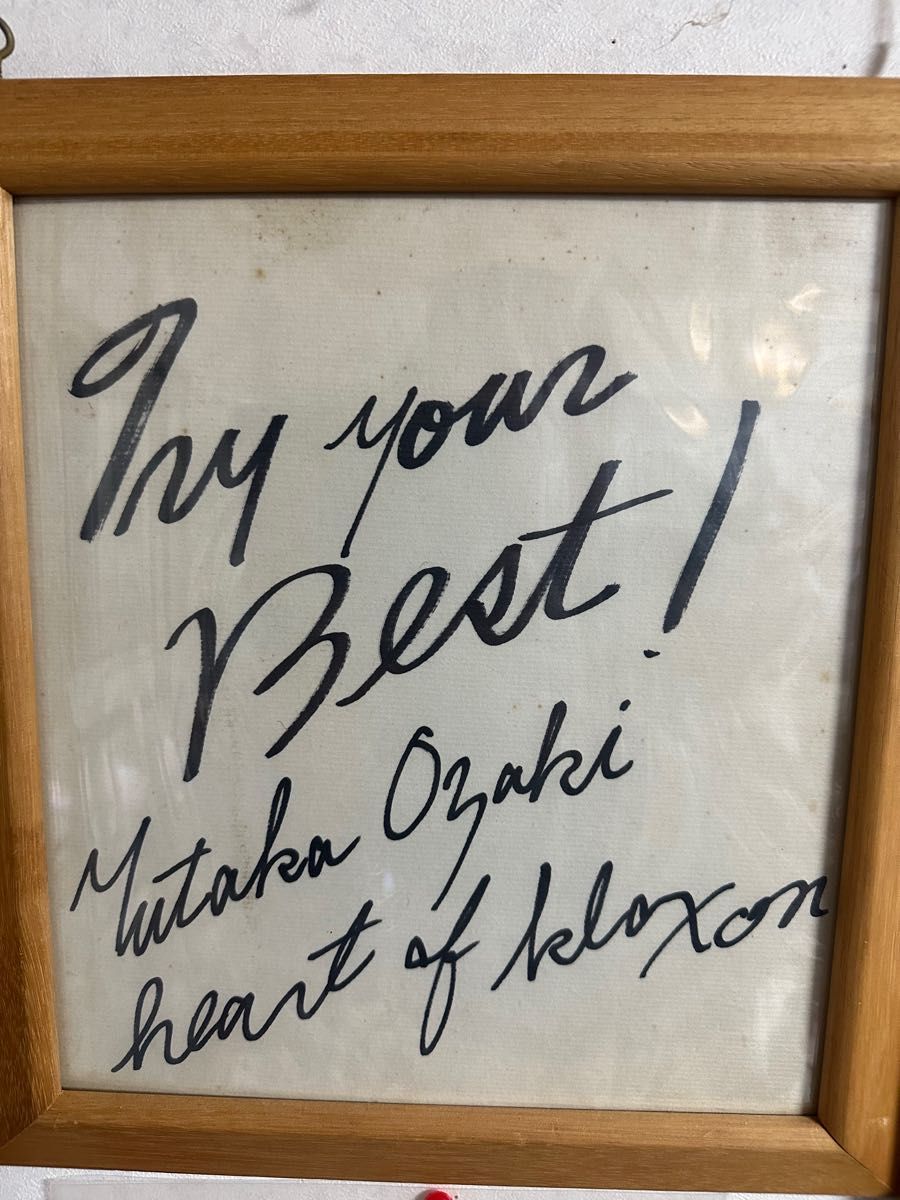 Try your
Best!
Yutaka Ozaki
heart of klaxon